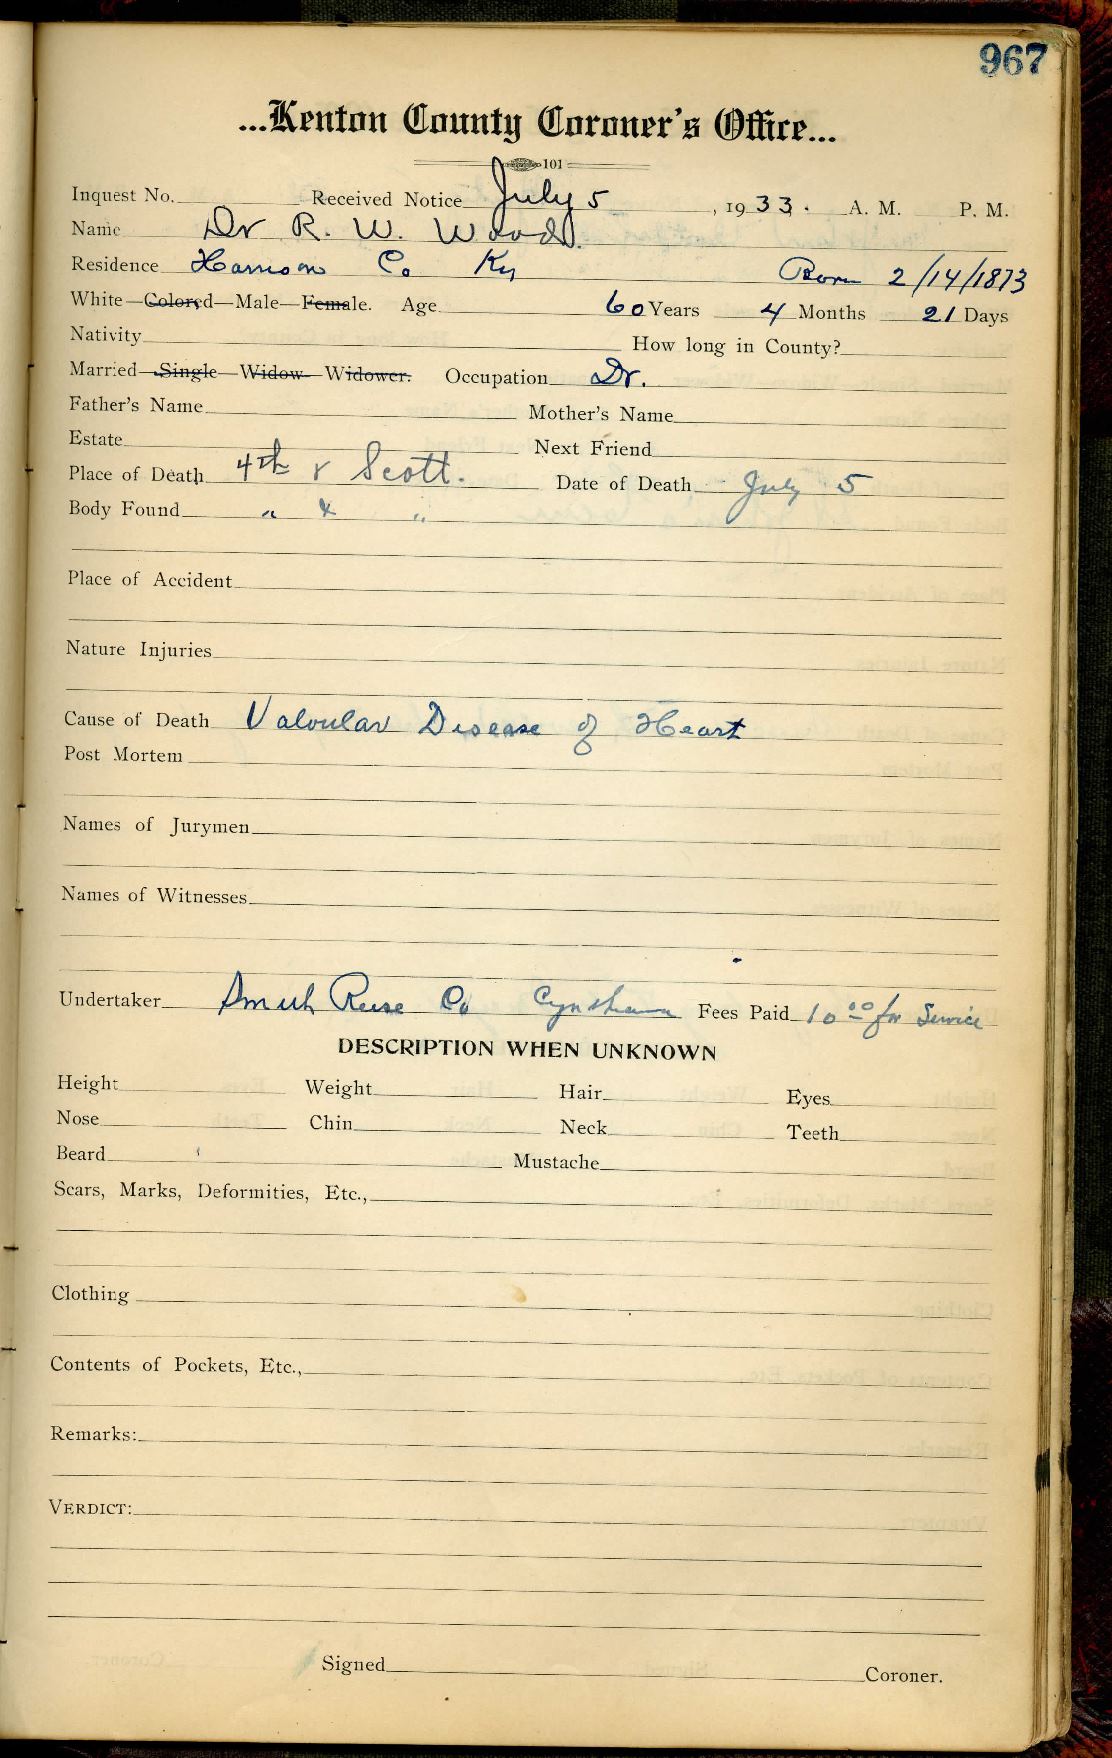 967
...Kenton County Coroner's Office...
101
Inquest No. Received Notice July 5, 1933. A. M. P. M.
Name Dr R. W. Wood.
Residence Harrison Co Ky Born 2/14/1873
White—Colored—Male—Female. Age 60 Years 4 Months 21 Days
Nativity How long in County?
Married—Single—Widow—Widower. Occupation Dr.
Father's Name Mother's Name
Estate Next Friend
Place of Death 4th & Scott. Date of Death July 5
Body Found " & "
Place of Accident
Nature Injuries
Cause of Death Valvular Disease of Heart
Post Mortem
Names of Jurymen
Names of Witnesses
Undertaker Smith Co Cynthiana Fees Paid 10 00 for Service
DESCRIPTION WHEN UNKNOWN
Height Weight Hair Eyes
Nose Chin Neck Teeth
Beard Mustache
Scars, Marks, Deformities, Etc.,
Clothing
Contents of Pockets, Etc.,
Remarks:
VERDICT:
Signed Coroner.